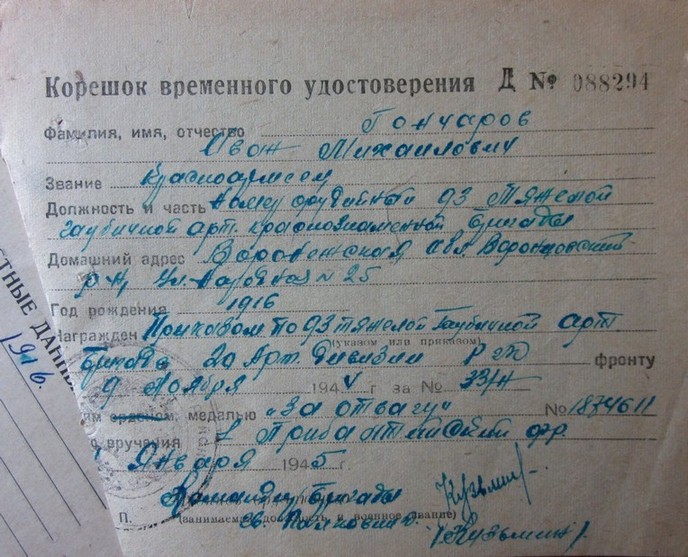 Корешок временного удостоверения Д № 088294
Фамилия, имя, отчество Гончаров
Иван Михаилович
Звание Красноармеец
Должность и часть Номер орудийный 93 Тяжелой
гаубичной арт. краснознаменной бригады
Домашний адрес Воронежская обл. Воронцовский
р-н, ул. Народная № 25
Год рождения 1916
Награжден Приказом по 93 тяжелой Гаубичной арт.
(указом или приказом)
Бригаде 2й Арт. Дивизии РГК фронту
9 Ноября 1944 г за № 33/Н
им орденом, медалью "За отвагу" № 1874611
вручения 1 Прибалтийский фр.
Января 1945 г.
Командир Бригады Кузьмин
П. (занимаемая должность и военное звание)
гв. Полковник (Кузьмин).
ТНЫЕ ДАНН
1916.